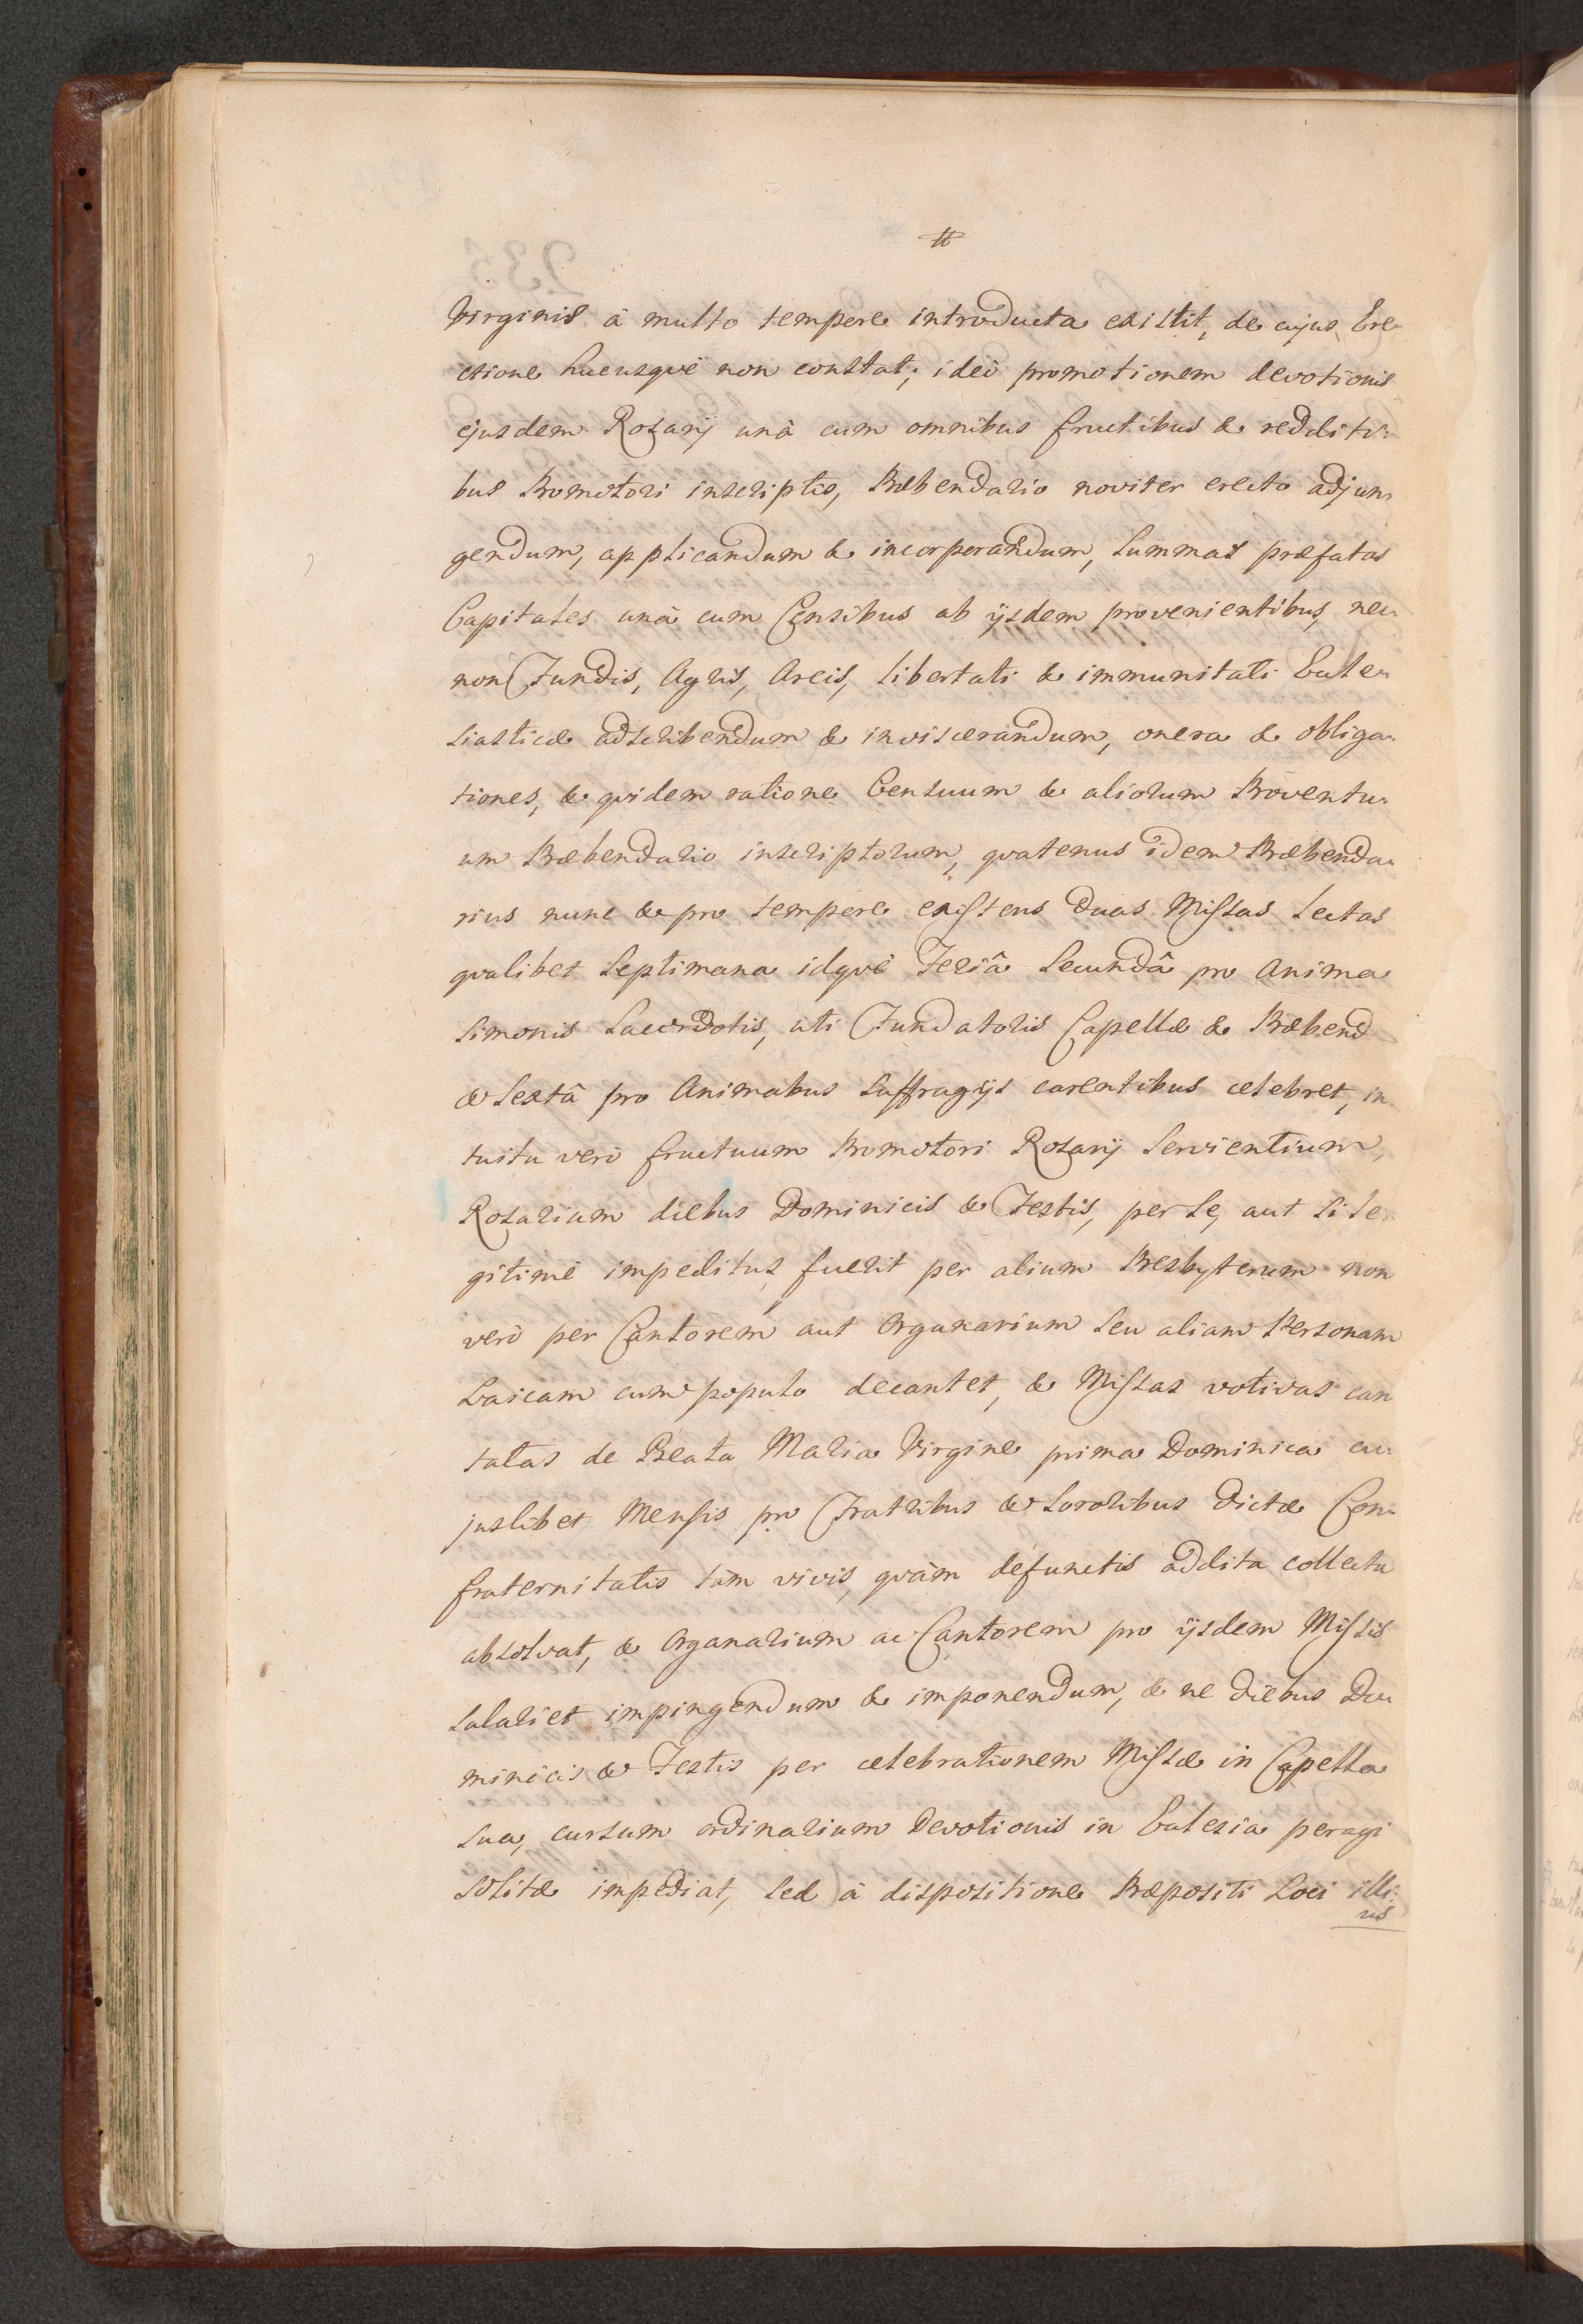 #
Virginis à multo tempore introducta existit, de cujus Ere-
ctione hucusqvè non constat; ideò promotionem devotionis
ejusdem Rosarij unà cum omnibus fructibus & redditi-
bus Promotori inscriptis, Præbendario noviter erecto adjun-
gendum, applicandum & incorporandum, Summas præfatas
Capitales unà cum Censibus ab ijsdem provenientibus, nec
non Fundis, Agris, Areis, libertati & immunitati Eccle-
siasticæ adscribendum & inviscerandum, onera & obliga-
tiones, & qvidem ratione Censuum & aliorum Proventu-
um Præbendario inscriptorum, qvatenus idem Præbenda-
rius nunc & pro tempore existens duas Missas lectas
qvalibet Septimana idqvè Feriâ Secundâ pro Anima
Simonis Sacerdotis, uti Fundatoris Capellæ & Præbend
& Sextâ pro Animabus Suffragijs carentibus celebret, in-
tuitu verò fructuum Promotori Rosarij Servientium,
Rosarium diebus Dominicis & Festis, per Se, aut Si le-
gitimè impeditus fuerit per alium Presbyterum non
verò per Cantorem aut Organarium Seu aliam Personam
Laicam cum populo decantet, & Missas votivas can
tatas de Beata Maria Virgine prima Dominica cu-
juslibet Mensis pro Fratribus & Sororibus dictæ Con-
fraternitatis tàm vivis, qvàm defunctis addita collecta
absolvat, & Organarium ac Cantorem pro ijsdem Missis
salariet impingendum & imponendum, & ne diebus Do-
minicis & Festis per celebrationem Missæ in Capella
Sua, cursum ordinarium Devotionis in Ecclesia peragi
Solitæ impediat, Sed à dispositione Præpositi Loci illi-
us